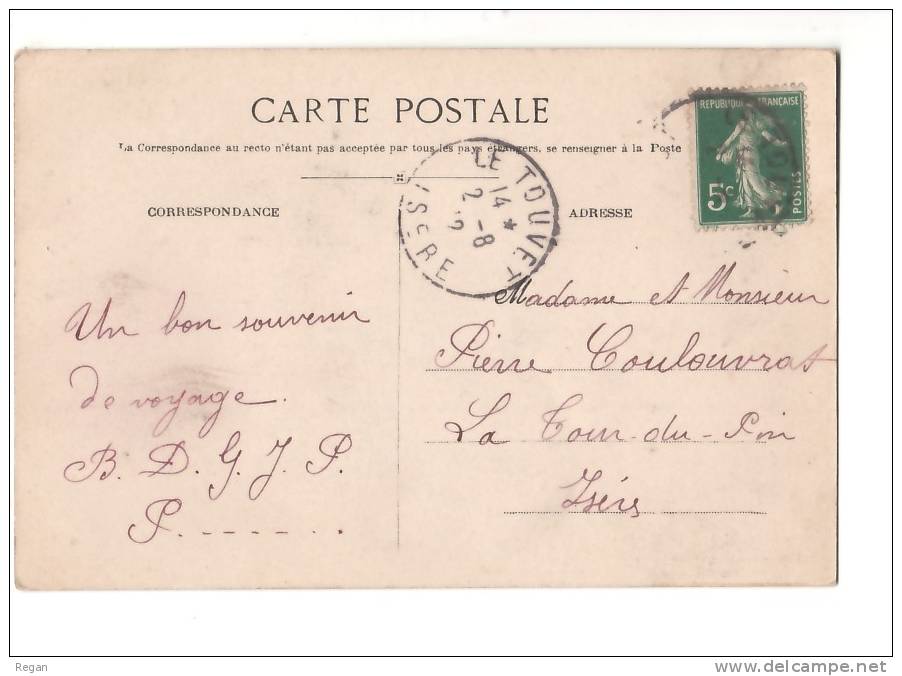 CARTE POSTALE
La Correspondance au recto n'étant pas acceptée par tous les pays étrangers, se renseigner à la Poste
CORRESPONDANCE
ADRESSE
REPUBLIQUE FRANÇAISE
5c
POSTES
LE TOUVET
14 *
2 -8
ISERE
Un bon souvenir
de voyage.
B. D. G. J. P.
P.------.
Madame et Monsieur
Pierre Coulouvrat
La Tour-du-Pin
Isère
Regan
www.delcampe.net